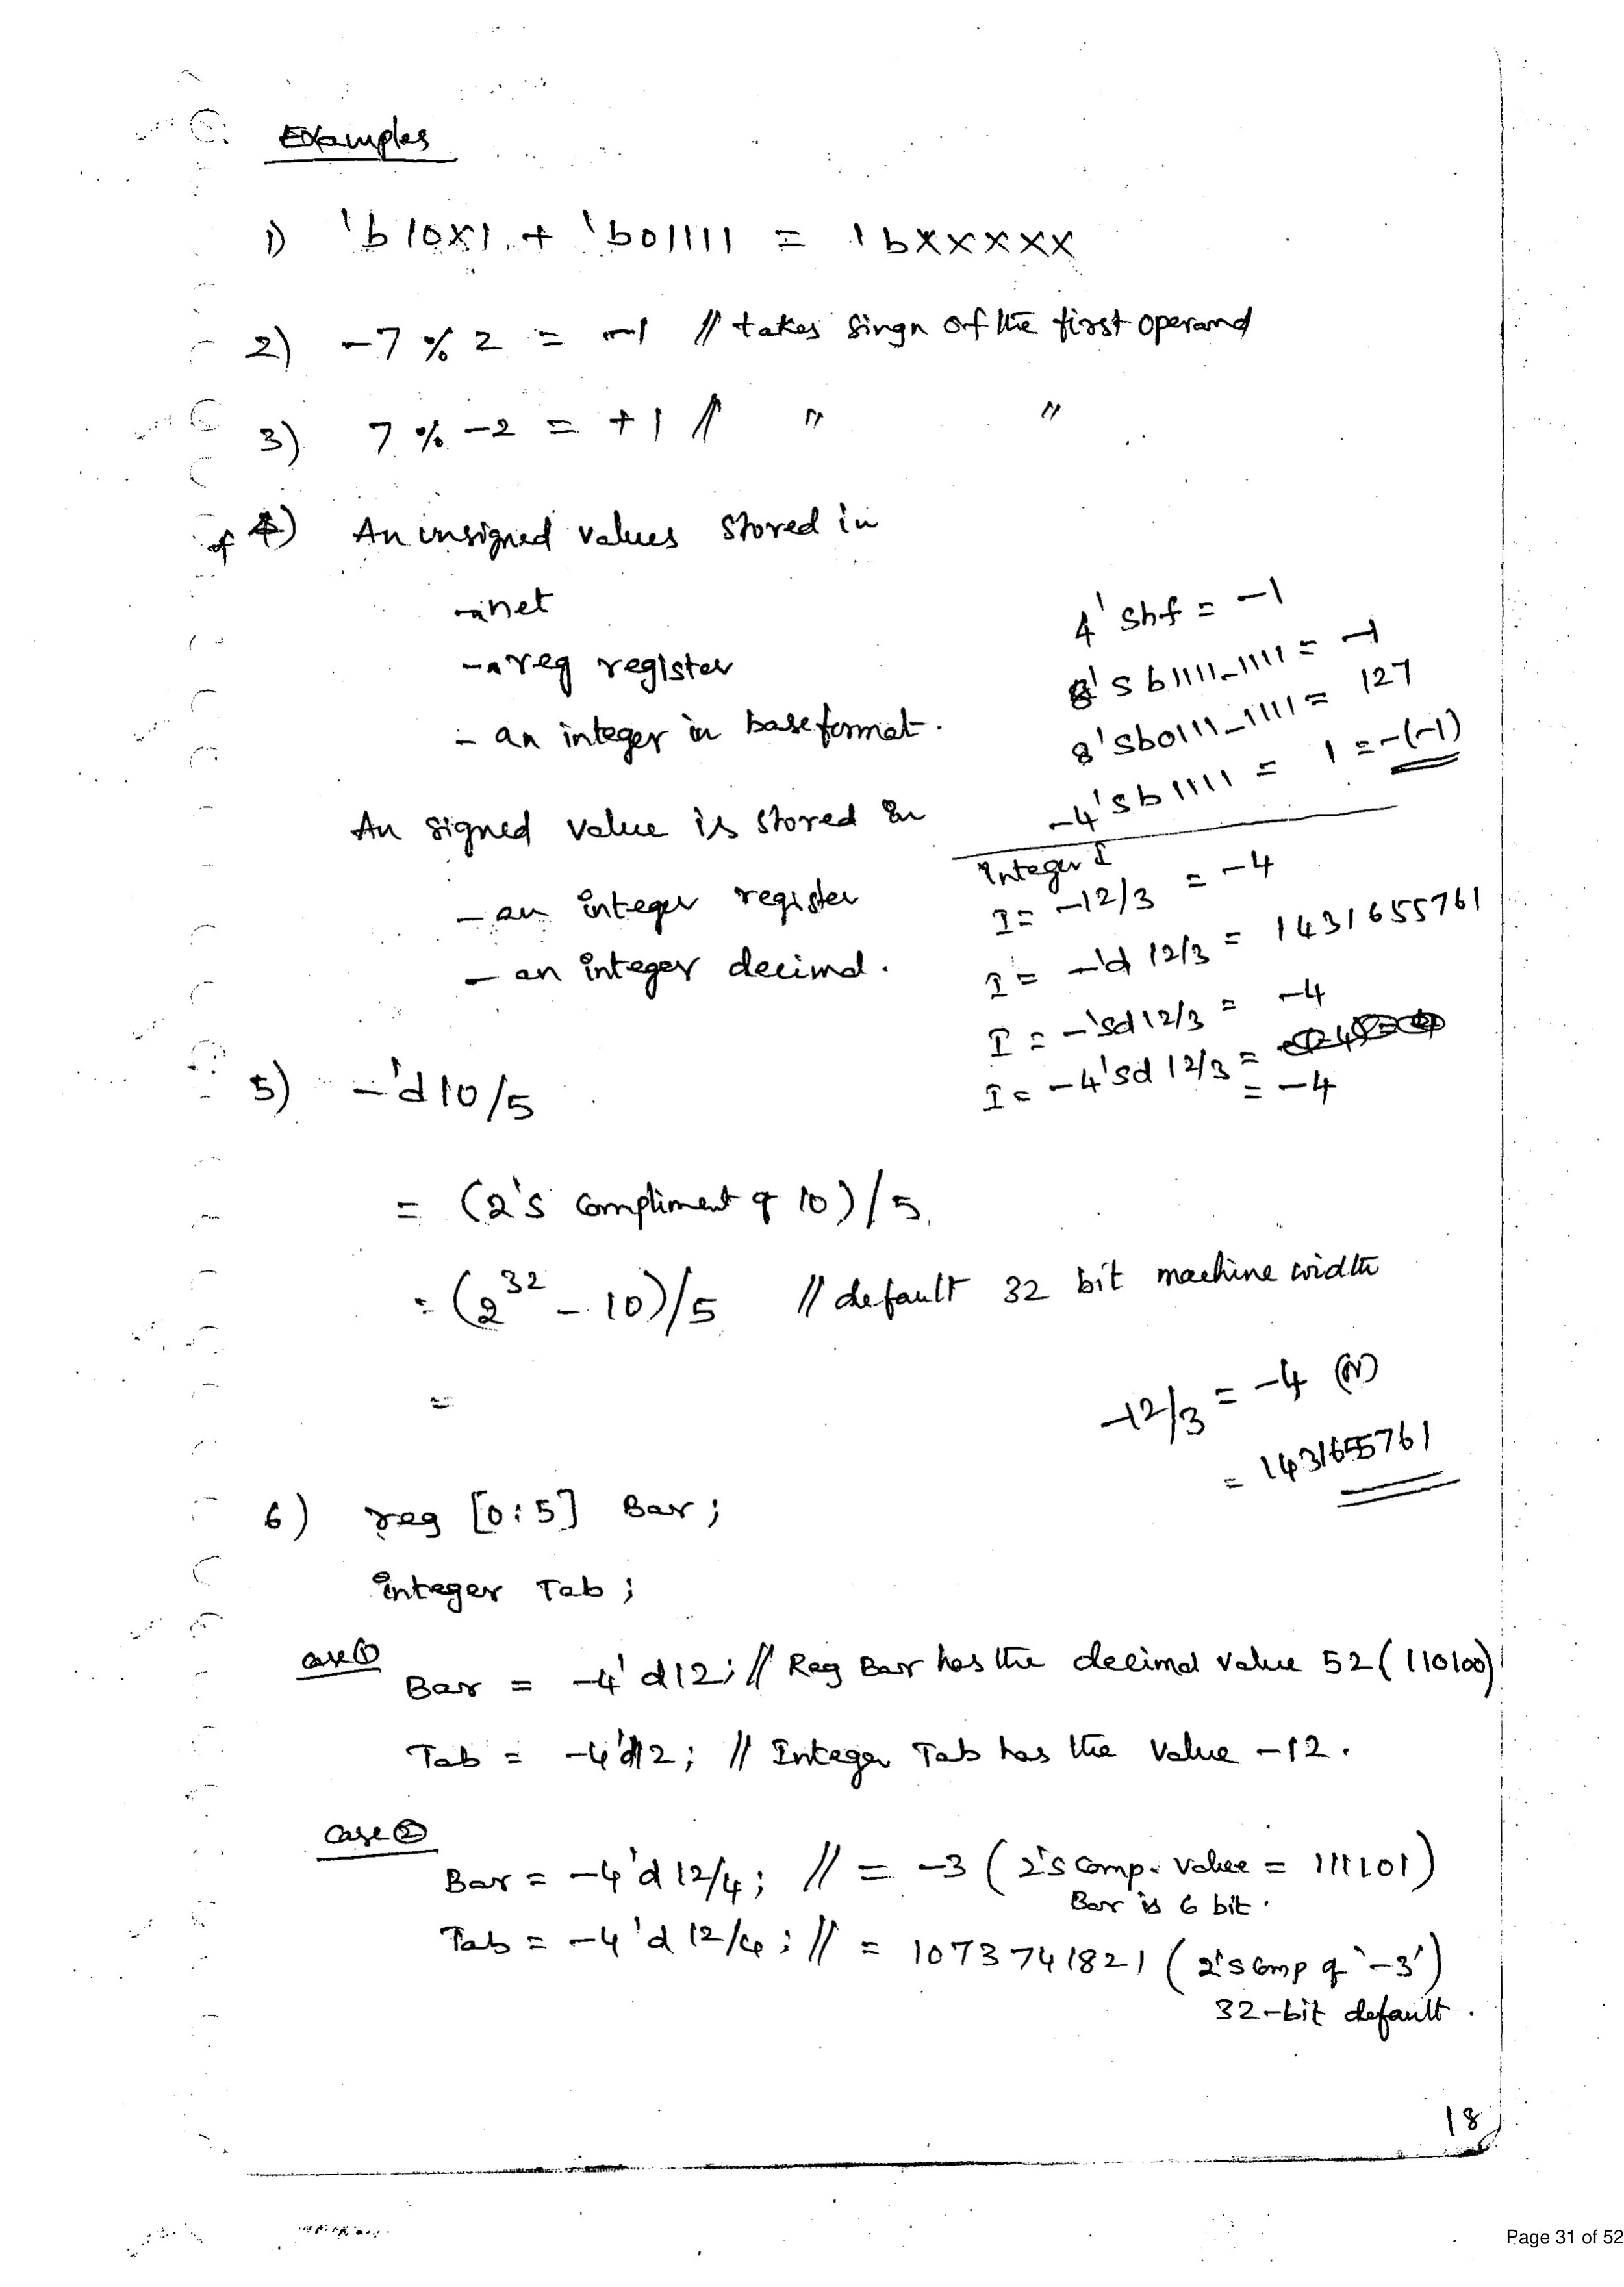 Examples
1) 'b10x1 + 'b01111 = 'bxxxxx
2) -7 % 2 = -1 // takes singn of the first operand
3) 7 % -2 = +1 // " "
* 4) An unsigned values stored in
- a net
- a reg register
- an integer in base format.
An signed value is stored in
- an integer register
- an integer decimal.
4'shf = -1
8'sb1111_1111 = -1
8'sb0111_1111 = 127
-4'sb1111 = 1 = -(-1)
Integer I
I = -12/3 = -4
I = -'d12/3 = 1431655761
I = -'sd12/3 = -4
I = -4'sd12/3 =
= -4
5) -'d10/5
= (2's compliment of 10)/5
= (2^32 - 10)/5 // default 32 bit machine width
=
-12/3 = -4 (or)
= 1431655761
6) reg [0:5] Bar;
integer Tab;
case ①
Bar = -4'd12; // Reg Bar has the decimal value 52 (110100)
Tab = -4'd12; // Integer Tab has the value -12.
case ②
Bar = -4'd12/4; // = -3 (2's comp. value = 111101)
Bar is 6 bit.
Tab = -4'd12/4; // = 1073741821 (2's comp of '-3')
32-bit default.
18
Page 31 of 52